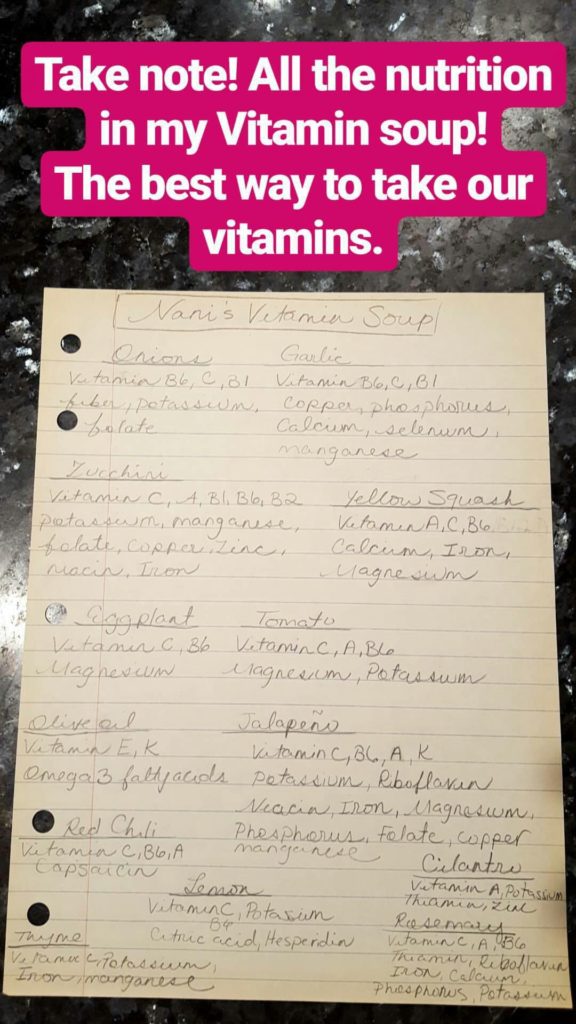 Take note! All the nutrition
in my Vitamin soup!
The best way to take our
vitamins.
Nani's Vitamin Soup
Onions
Vitamin B6, C, B1
fiber, potassium,
folate
Garlic
Vitamin B6, C, B1
Copper, phosphorus,
Calcium, selenium,
manganese
Zucchini
Vitamin C, A, B1, B6, B2
potassium, manganese,
folate, Copper, Zinc,
niacin, Iron
Yellow Squash
Vitamin A, C, B6
Calcium, Iron,
Magnesium
Eggplant
Vitamin C, B6
Magnesium
Tomato
Vitamin C, A, B6
Magnesium, Potassum
Olive oil
Vitamin E, K
Omega 3 fatty acids
Jalapeño
Vitamin C, B6, A, K
Potassium, Riboflavin
Niacin, Iron, Magnesium,
Phosphorus, Folate, copper
manganese
Red Chili
Vitamin C, B6, A
Capsaicin
Cilantro
Vitamin A, Potassium
Thiamin, Zinc
Lemon
Vitamin C, Potasium
B6
Citric acid, Hesperidin
Rosemary
Vitamin C, A, B6
Thiamin, Riboflavin
Iron, Calcium,
Phosphorus, Potassium
Thyme
Vitamin C, Potassium,
Iron, manganese